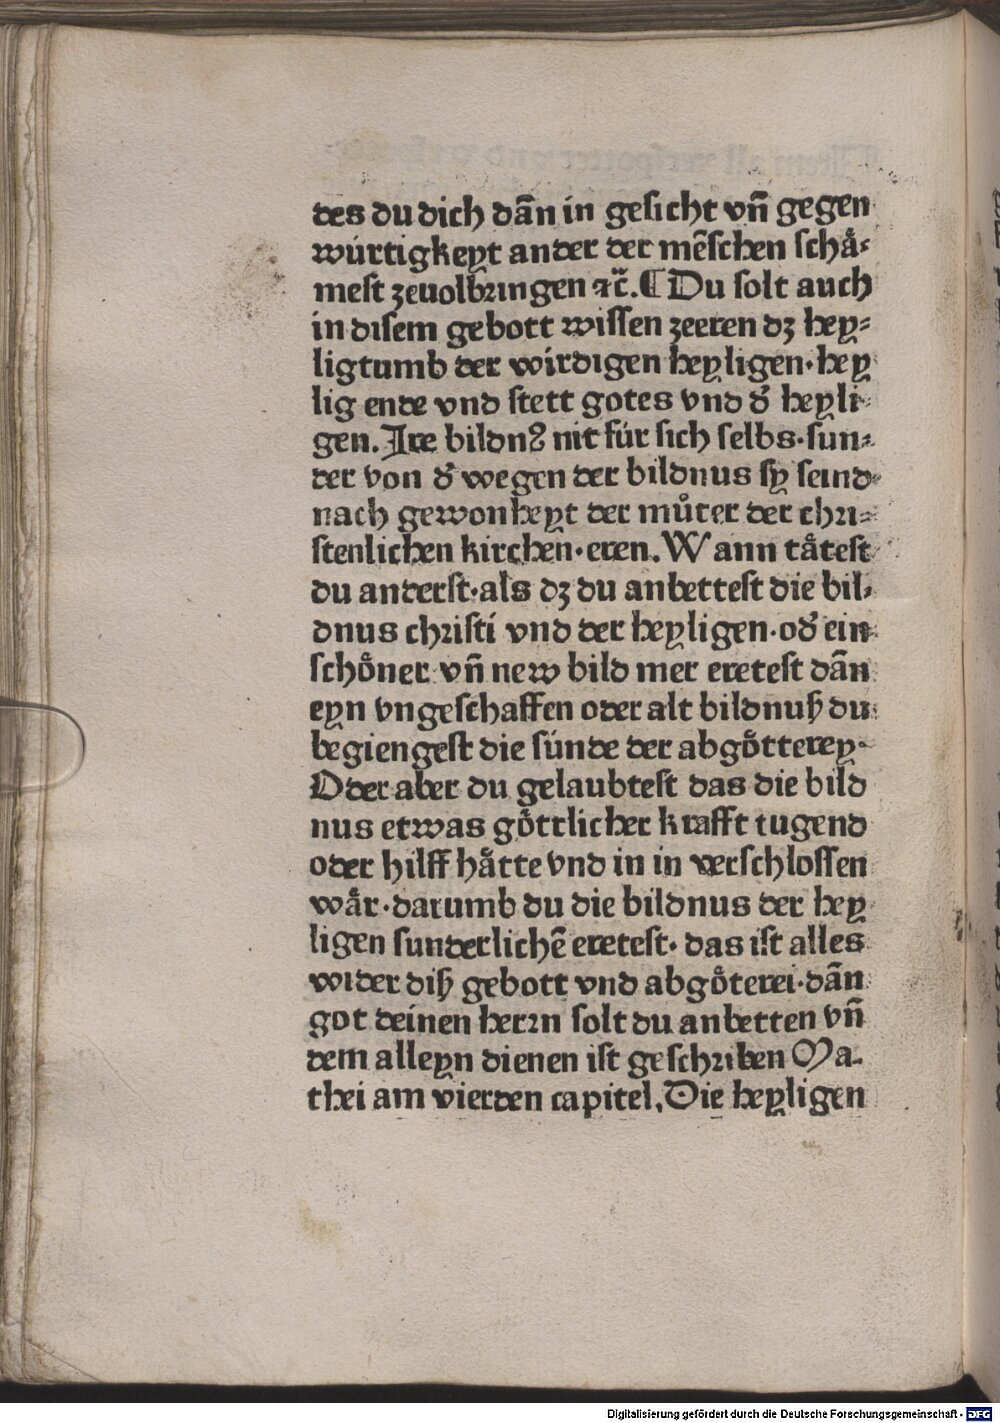 des du dich dañ in gesicht vñ gegen
würtigkeyt ander der mēschen schå⸗
mest zeuolbꝛingen ꝛc̃. ¶ Du solt auch
in disem gebott wissen zeeren dz hey⸗
ligtumb der wirdigen heyligen·hey
lig ende vnd stett gotes vnd d̕ heyli⸗
gen. Ire bildnꝰ nit für sich selbs·sun⸗
der von d̕ wegen der bildnus sy seind
nach gewonheyt der můter der chꝛi⸗
stenlichen kirchen·eren. Wann tåtest
du anderst·als dz du anbettest die bil⸗
dnus chꝛisti vnd der heyligen·od̕ ein
schöner vñ new bild mer eretest dañ
eyn vngeschaffen oder alt bildnuß du
begiengest die sünde der abgötterey·
Oder aber du gelaubtest das die bild
nus etwas göttlicher krafft tugend
oder hilff håtte vnd in in verschlossen
wår·darumb du die bildnus der hey
ligen sunderlichē eretest· das ist alles
wider diß gebott vnd abgöterei·dañ
got deinen herꝛn solt du anbetten vñ
dem alleyn dienen ist geschꝛiben Ma⸗
thei am vierden capitel. Die heyligen
Digitalisierung gefördert durch die Deutsche Forschungsgemeinschaft - DFG